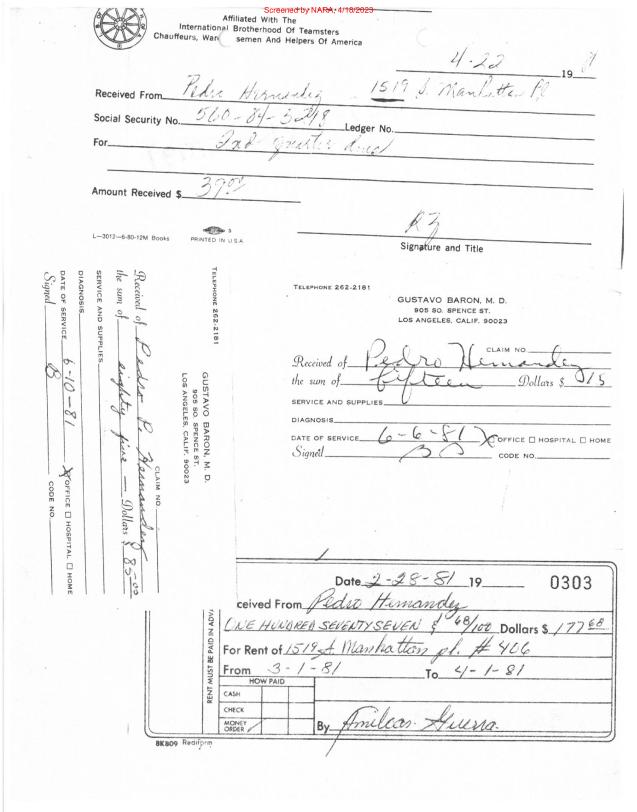 Screened by NARA, 4/18/2023
Affiliated With The
International Brotherhood Of Teamsters
Chauffeurs, War semen And Helpers Of America
4-22 19 81
Received From Pedro Hernandez 1519 S. Manhattan Pl
Social Security No. Ledger No.
For 2nd quarter dues
Amount Received $ 39.00
RZ
Signature and Title
L-3012-6-80-12M Books
3
PRINTED IN U.S.A.
TELEPHONE 262-2181
GUSTAVO BARON, M. D.
905 SO. SPENCE ST.
LOS ANGELES, CALIF. 90023
CLAIM NO.
Received of Pedro P. Hernandez
the sum of eighty five — Dollars $ 85.00
SERVICE AND SUPPLIES
DIAGNOSIS
DATE OF SERVICE 6-10-81 X OFFICE HOSPITAL HOME
Signed B CODE NO.
TELEPHONE 262-2181
GUSTAVO BARON, M. D.
905 SO. SPENCE ST.
LOS ANGELES, CALIF. 90023
CLAIM NO.
Received of Pedro Hernandez
the sum of fifteen Dollars $ 15
SERVICE AND SUPPLIES
DIAGNOSIS
DATE OF SERVICE 6-6-81 X OFFICE HOSPITAL HOME
Signed CODE NO.
Date 2-28-81 19 0303
ceived From Pedro Hernandez
ONE HUNDRED SEVENTY SEVEN $ 68/100 Dollars $ 177 68
For Rent of 1519 S. Manhattan pl. # 406
From 3-1-81 To 4-1-81
RENT MUST BE PAID IN ADV
HOW PAID
CASH
CHECK
MONEY ORDER
By Amilcar Guerra
8K809 Rediform